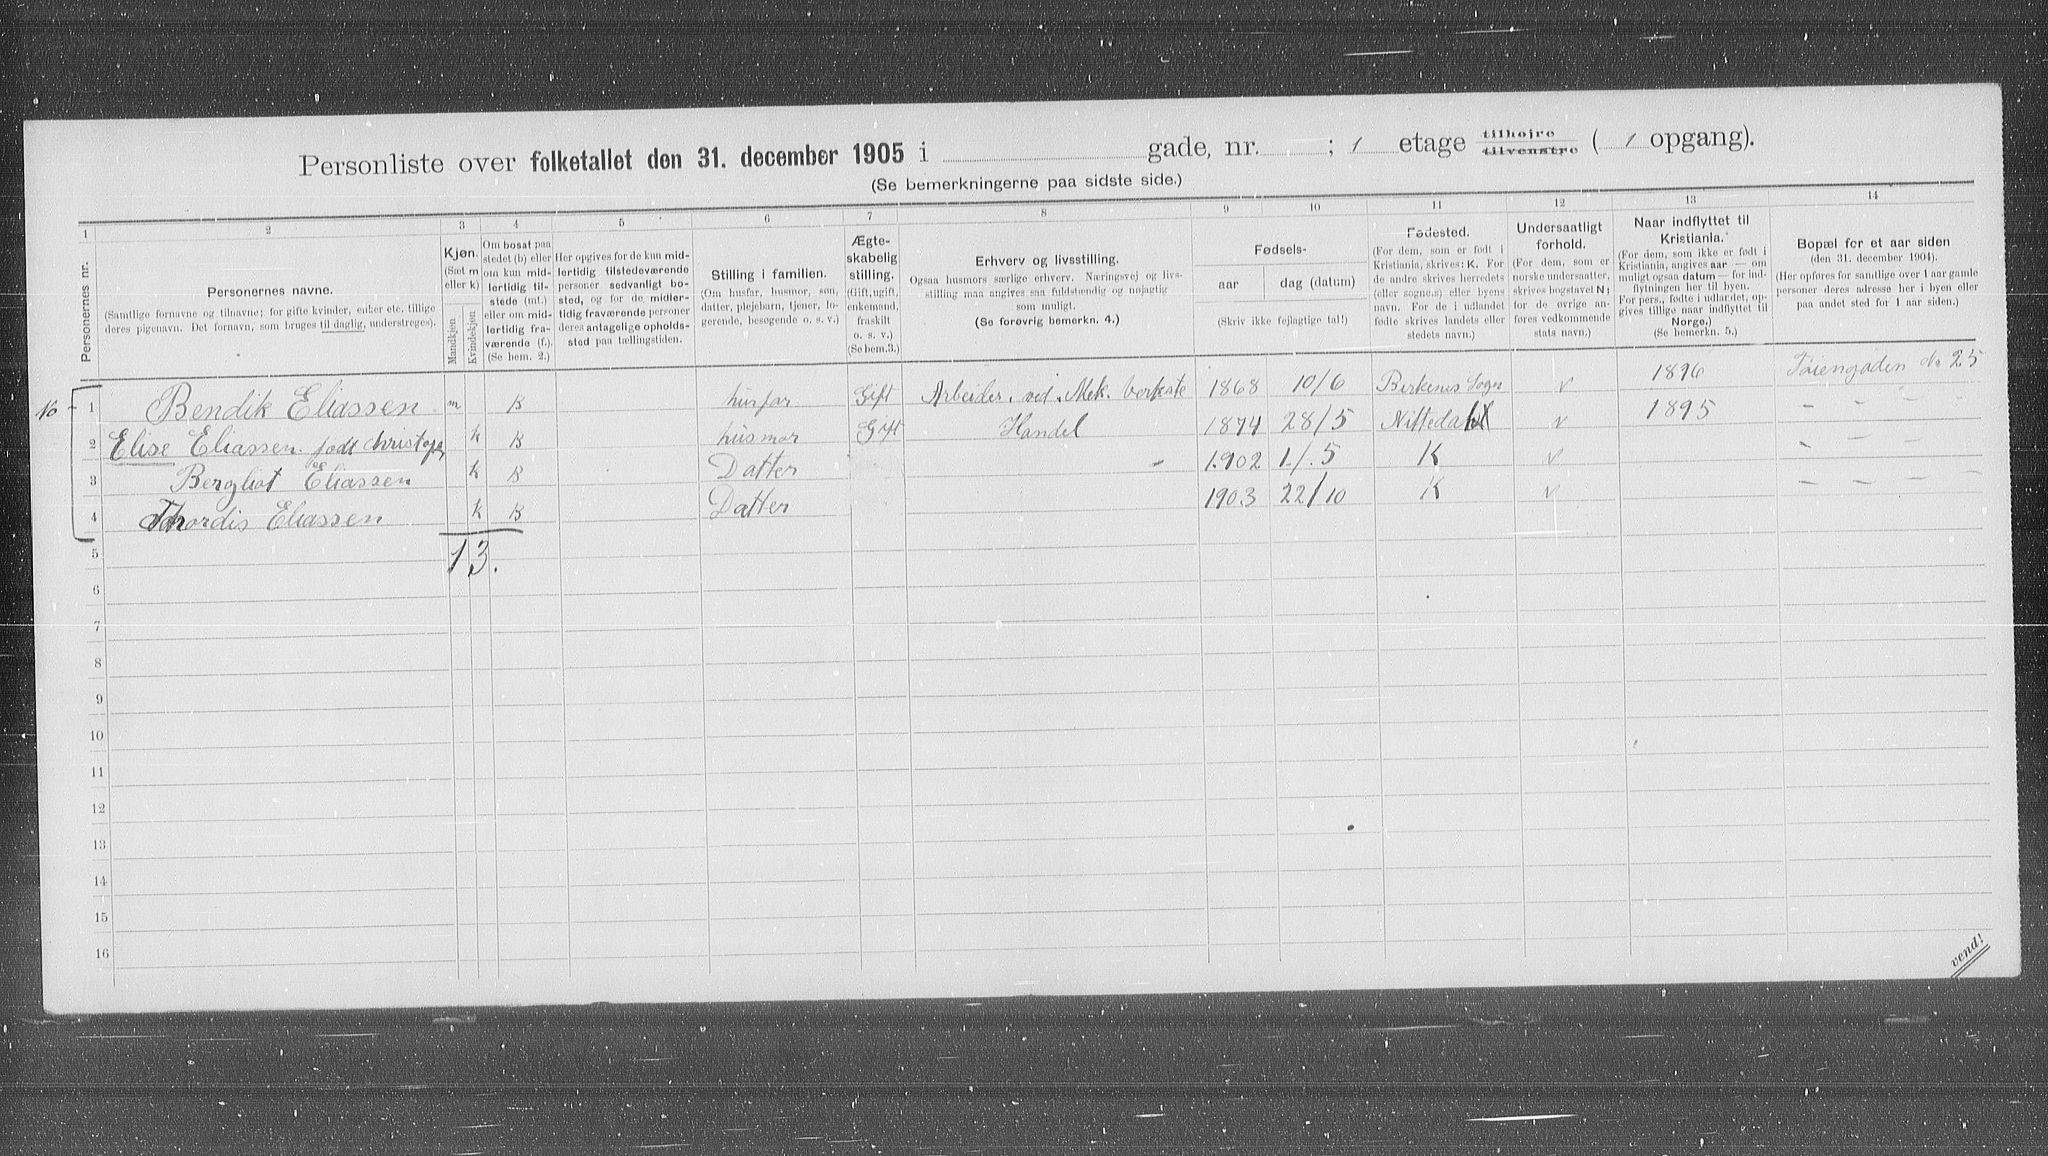 Personliste over folketallet den 31. december 1905 i gade, nr. ; 1 etage tilhøjre tilvenstre ( 1 opgang).
(Se bemerkningerne paa sidste side.)
1 2 3 4 5 6 7 8 9 10 11 12 13 14
Personernes nr.
Personernes navne.
(Samtlige fornavne og tilnavne; for gifte kvinder, enker etc. tillige
deres pigenavn. Det fornavn, som bruges til daglig, understreges).
Kjøn.
(Sæt m
eller k)
Mandkjøn.
Kvindekjøn.
Om bosat paa
stedet (b) eller
om kun mid-
lertidig til-
stede (mt.)
eller om mid-
lertidig fra-
værende (f.).
(Se bem. 2.)
Her opgives for de kun mid-
lertidig tilstedeværende
personer sedvanligt bo-
sted, og for de midler-
tidig fraværende personer
deres antagelige opholds-
sted paa tællingstiden.
Stilling i familien.
(Om husfar, husmor, søn,
datter, plejebarn, tjener, lo-
gerende, besøgende o. s. v.)
Ægte-
skabelig
stilling.
(Gift, ugift,
enkemand,
fraskilt
o. s. v.)
(Se bem.3.)
Erhverv og livsstilling.
Ogsaa husmors særlige erhverv. Næringsvej og livs-
stilling maa angives saa fuldstændig og nøjagtig
som muligt.
(Se forøvrig bemerkn. 4.)
Fødsels-
aar dag (datum)
(Skriv ikke fejlagtige tal!)
Fødested.
(For dem, som er født i
Kristiania, skrives: K. For
de andre skrives herredets
(eller sognets) eller byens
navn. For de i udlandet
fødte skrives landets eller
stedets navn.)
Undersaatligt
forhold.
(For dem, som er
norske undersaatter,
skrives bogstavet N;
for de øvrige an-
føres vedkommende
stats navn.)
Naar indflyttet til
Kristiania.
(For dem, som ikke er født i
Kristiania, angives aar — om
muligt ogsaa datum — for ind-
flytningen her til byen.
For pers., fødte i udlandet, op-
gives tillige naar indflyttet til
Norge.)
(Se bemerkn. 5.)
Bopæl for et aar siden
(den 31. december 1904).
(Her opføres for samtlige over 1 aar gamle
personer deres adresse her i byen eller
paa andet sted for 1 aar siden.)
1 Bendik Eliassen m B husfar Gift Arbeider ved Mek. 1868 10/6 Birkenes Sogn 1896 Tøiengaden No 25
2 Elise Eliassen født k B husmor Gift Handel 1874 28/5 Nittedal 1895 - - -
3 Bergliot Eliassen k B Datter - 1902 1/5 K - - -
4 Thordis Eliassen k B Datter 1903 22/10 K - - -
5 1 3.
6
7
8
9
10
11
12
13
14
15
16
vend!